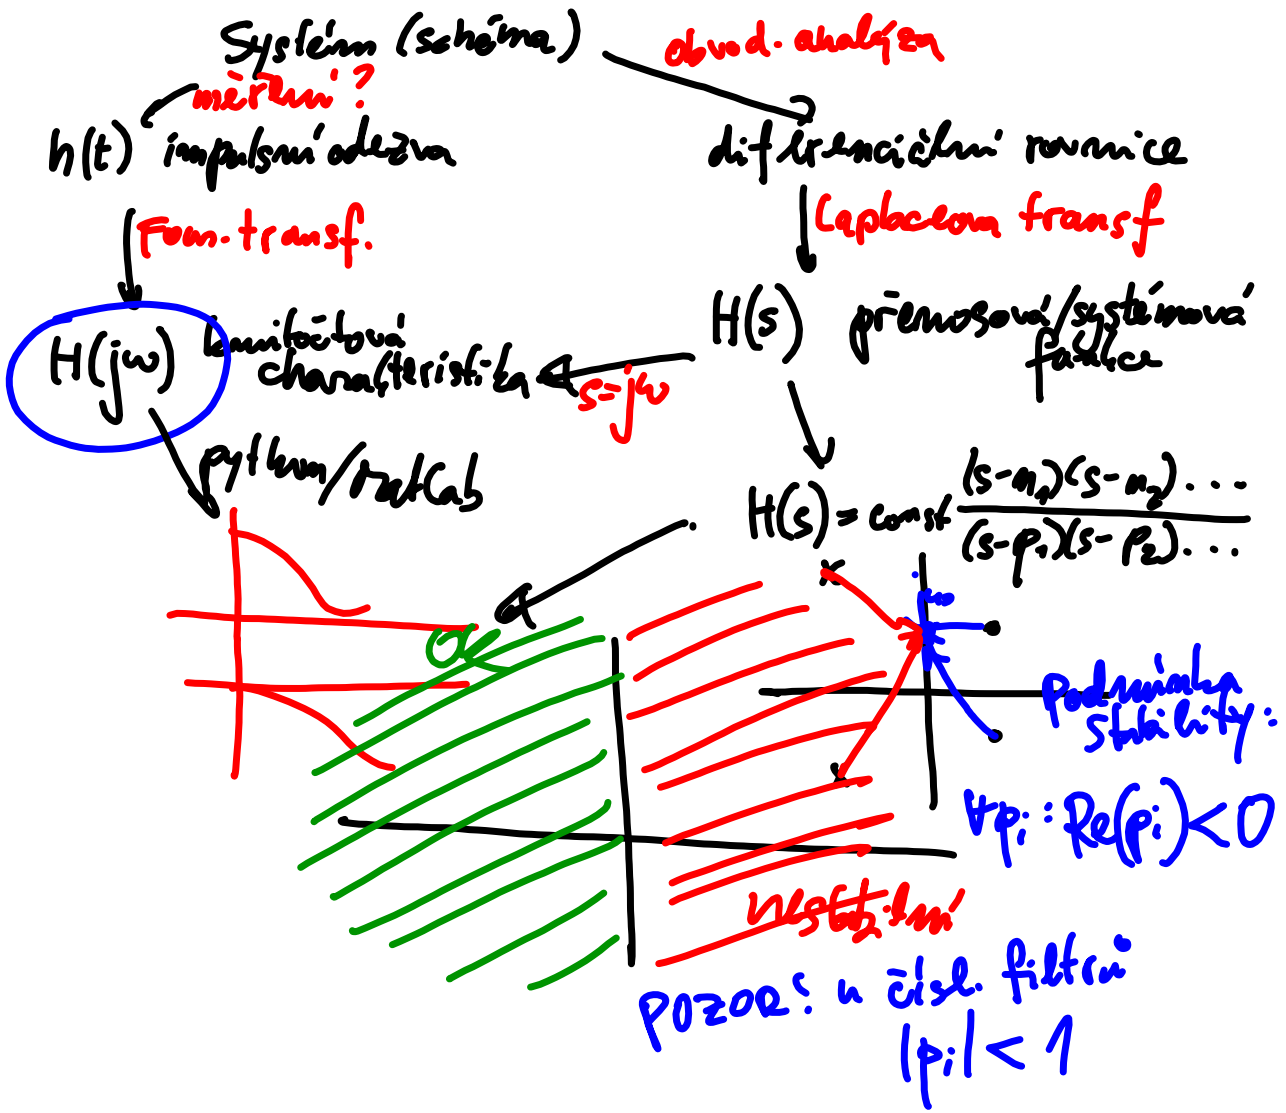 Systém (schéma)
obvod. analýza
měření?
h(t) impulsní odezva
diferenciální rovnice
Four. transf.
Laplaceova transf
H(jω) kmitočtová
charakteristika
H(s) přenosová/systémová
fankce
s=jω
python/Matlab
H(s) = const (s-n₁)(s-n₂)....
(s-p₁)(s-p₂)...
jω
OK
Podmínka
stability:
∀pᵢ: Re(pᵢ)<0
nestabilní
POZOR! u čísl. filtrů
|pᵢ| < 1